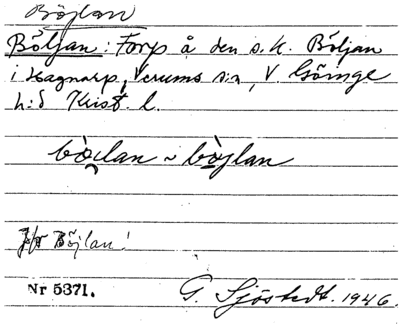 Böjlan
Böljan: Torp å den s.k. Böljan
i Hagnarp, Verums s:n, V. Göinge
h:d Krist. l.
bò̤ɪlan ~ bò̤jlan
Jfr Böjlan!
Nr 5371. G. Sjöstedt. 1946.